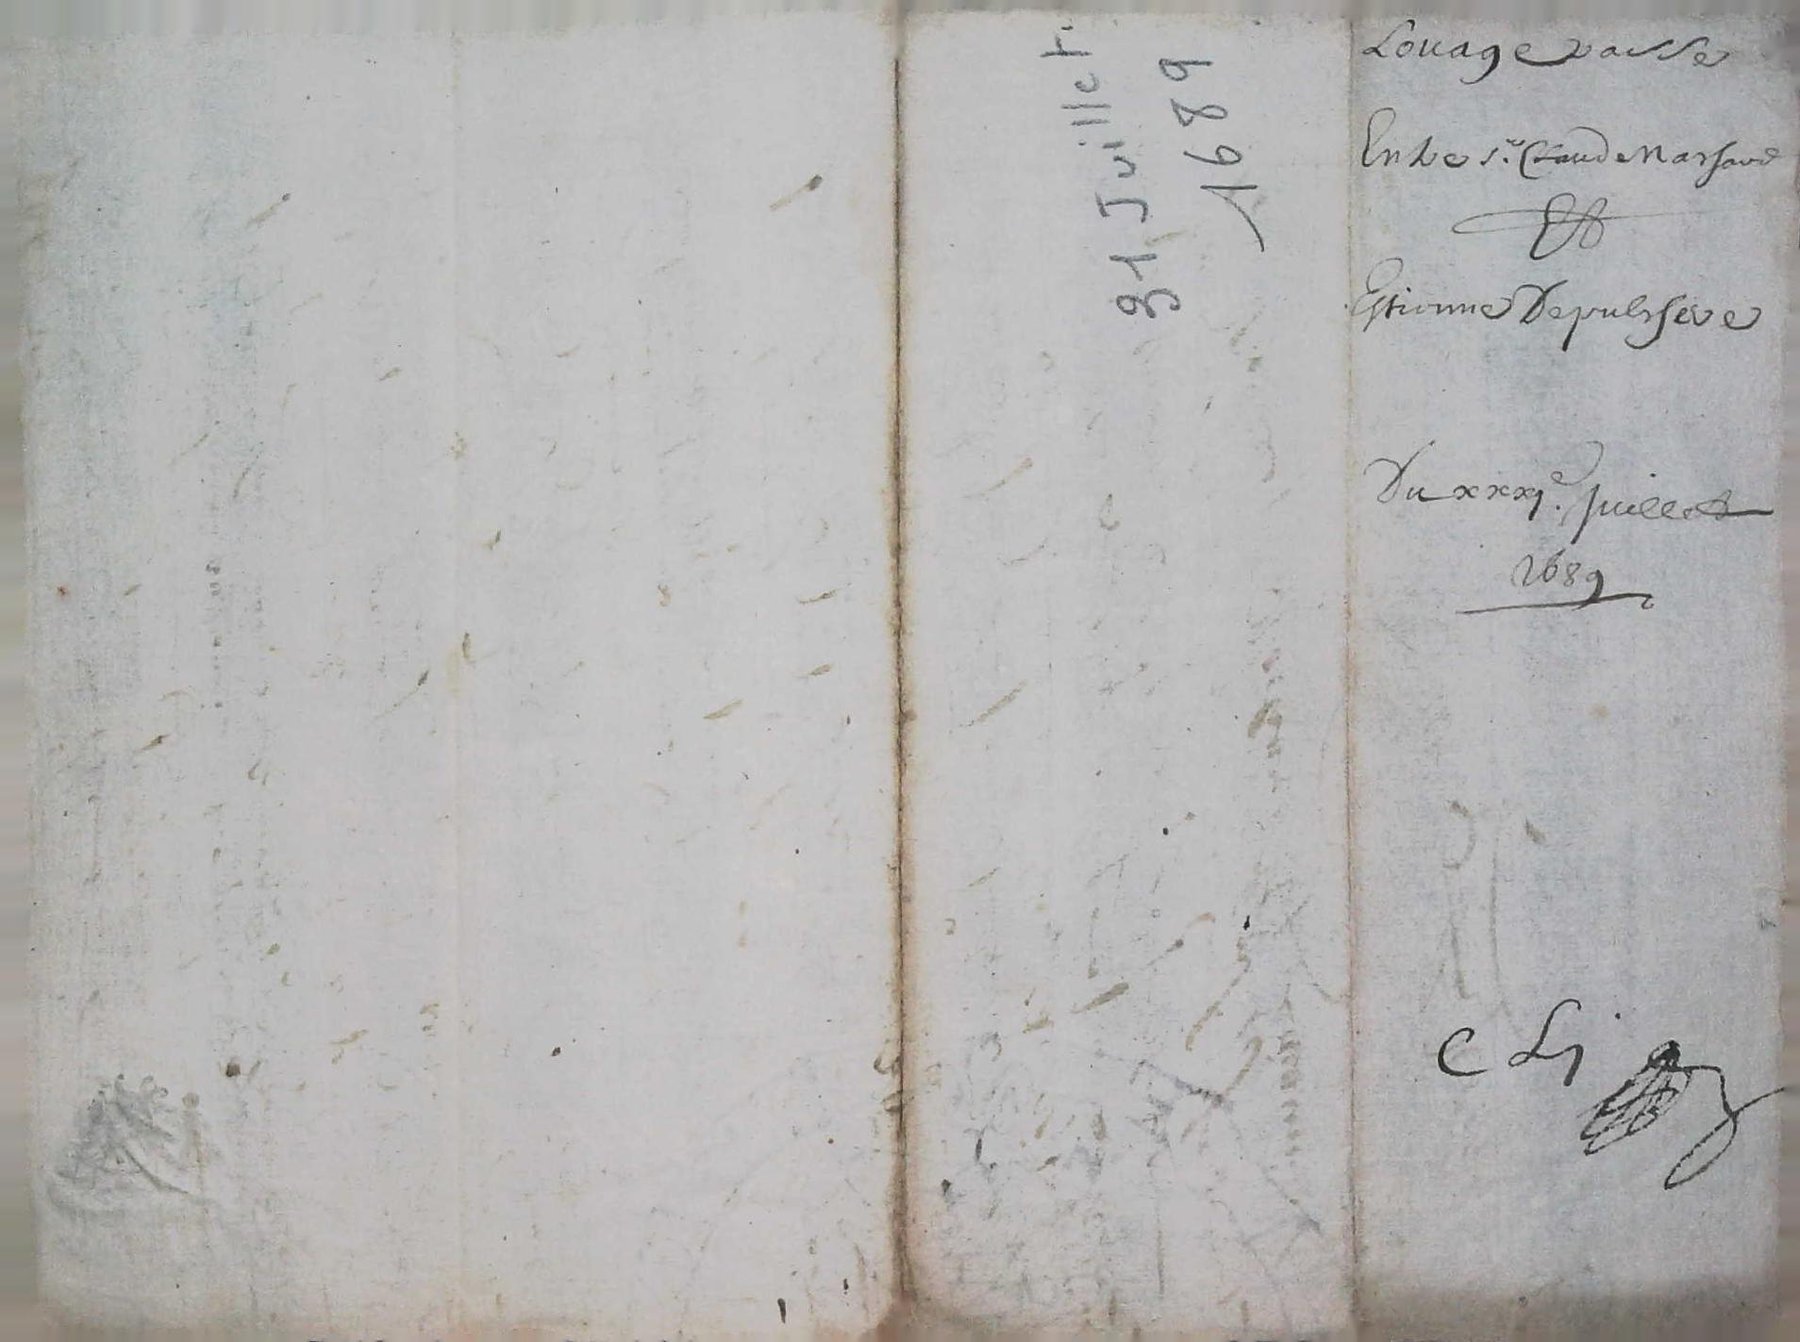 31 Juillet
1689
Louage passé
Entre Sr. Claude Marsand
Et
Estienne Depulsseve
Du xxxj.e juillet
1689